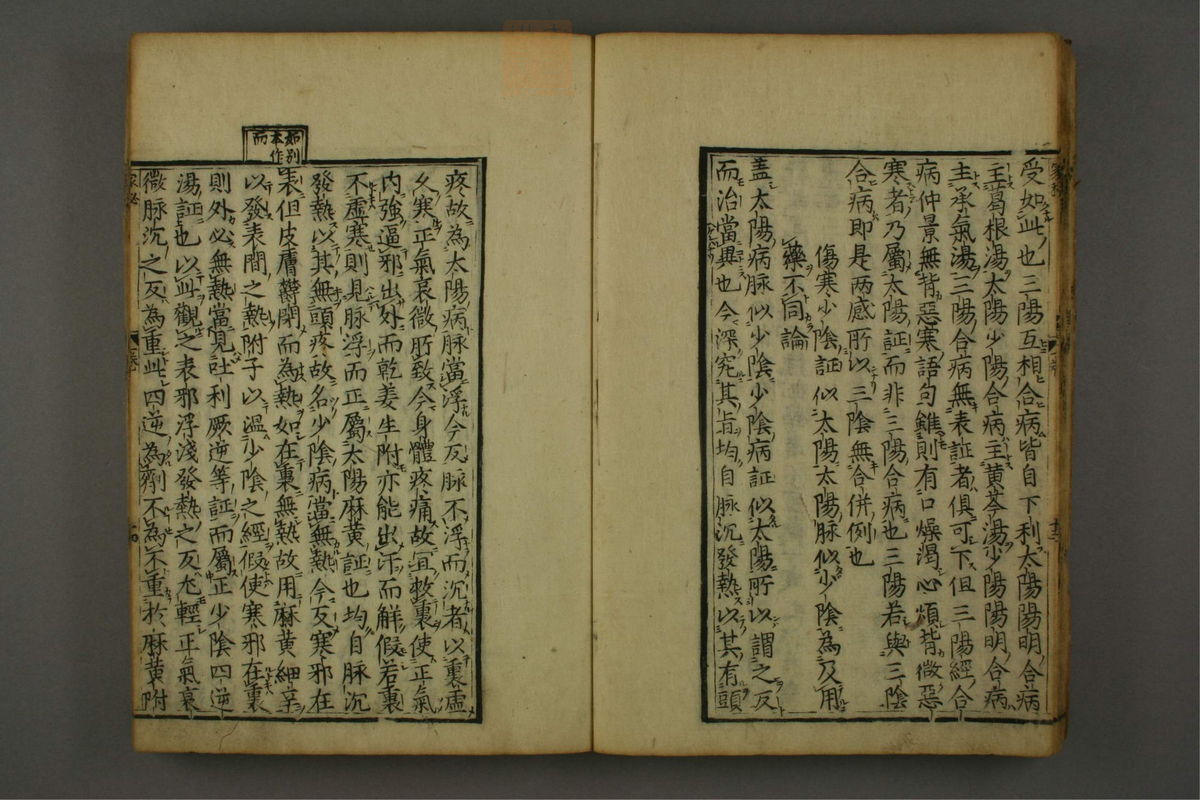 受如此也三陽互相合病皆自下利太陽陽明合病
主葛根湯太陽少陽合病主黄芩湯少陽陽明合病
主承氣湯三陽合病無表証者俱可下但三陽經合
病仲景無背惡寒語句雖則有口燥渴心煩背微惡
寒者乃屬太陽証而非三陽合病也三陽若與三陰
合病即是两感所以三陰無合併例也
傷寒少陰証似太陽太陽脉似少陰為反用
藥不同論
盖太陽病脉似少陰少陰病証似太陽所以謂之反
而治當異也今深究其旨均自脉沉發熱以其有頭
疼故為太陽病脉當浮今反脉不浮而沉者以裏虚
久寒正氣衰微所致今身體疼痛故宜救裏使正氣
内強逼邪出外而乾姜生附亦能出汗而解假若裏
不虚寒則見脉浮而正屬太陽麻黄証也均自脉沉
發熱以其無頭疼故名少陰病當無熱今反寒邪在
表但皮膚欝閉而為熱如在裏無熱故用麻黄細辛
以發表間之熱附子以温少陰之經假使寒邪在裏
則外必無熱當見吐利厥逆等証而屬正少陰四逆
湯証也以此觀之表邪浮淺發熱之反尤輕正氣衰
微脉沉之反為重此四逆為劑不為不重於麻黄附
如別
本作
而